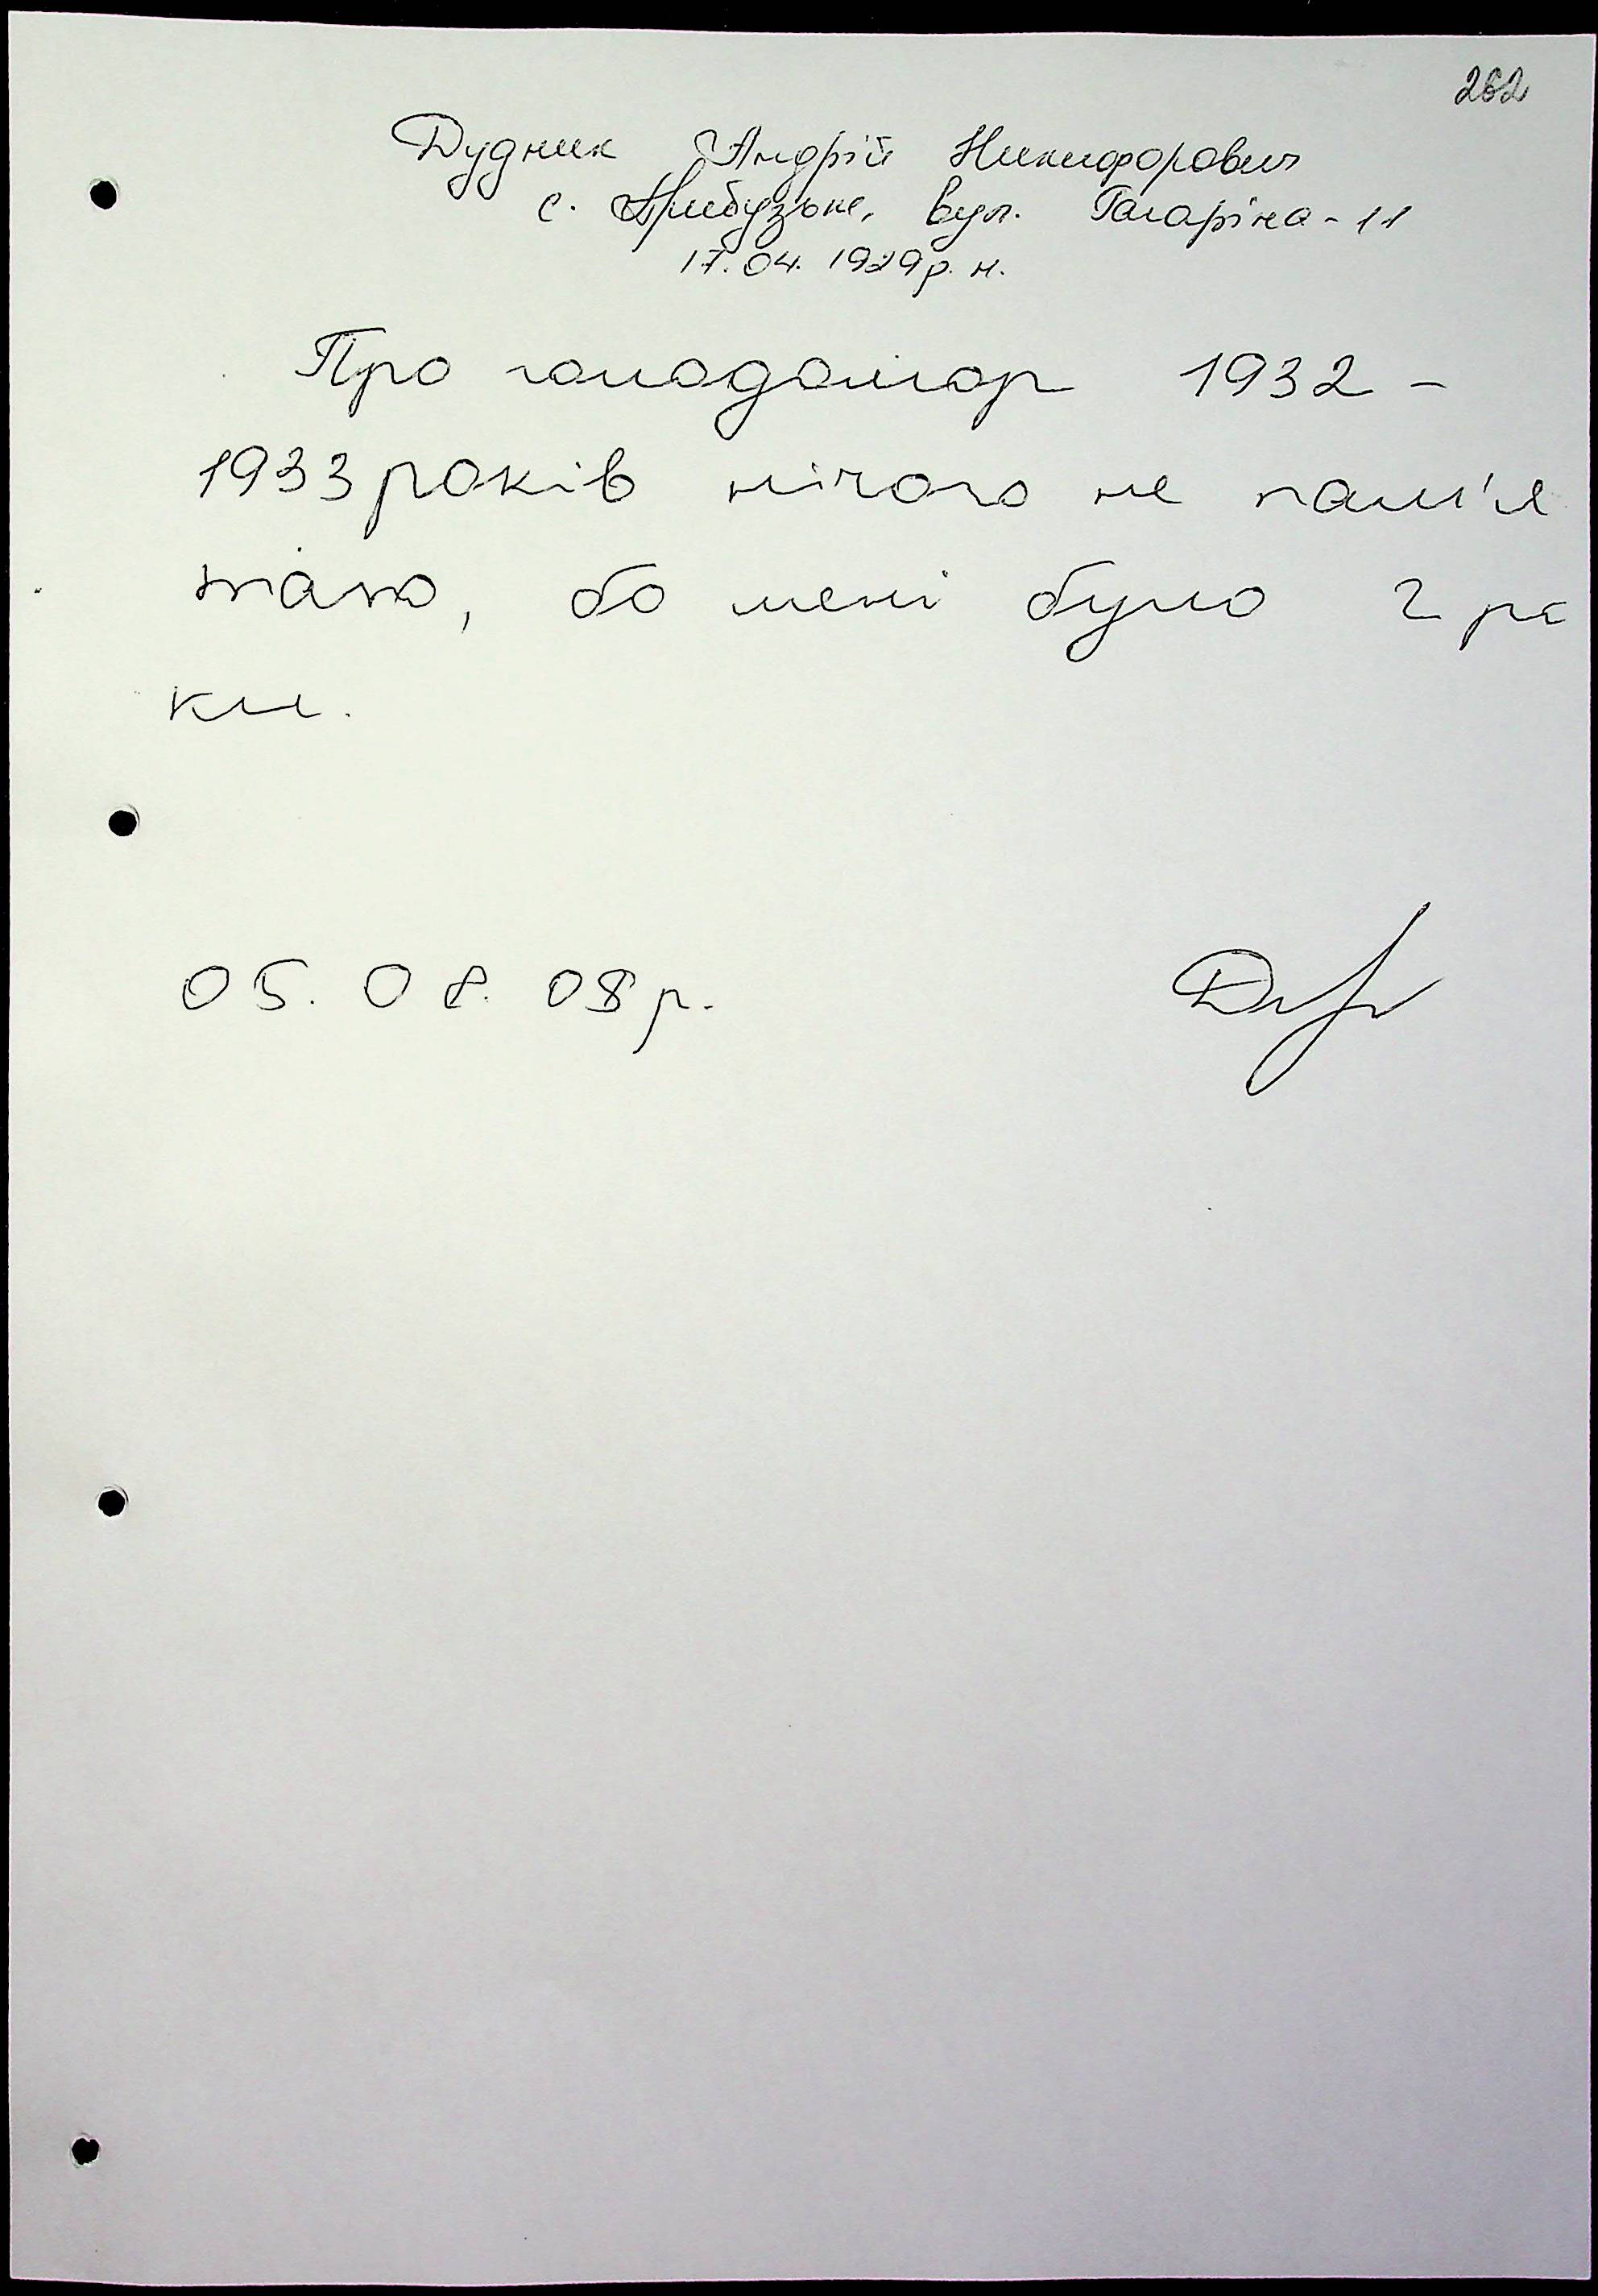 262
Дудник Андрій Никифорович
с. Прибузьке, вул. Гагаріна - 11
17. 04. 1929 р. н.
Про голодомор 1932 -
1933 років нічого не пам'я
таю, бо мені було 2 ро
ки.
05. 08. 08 р.